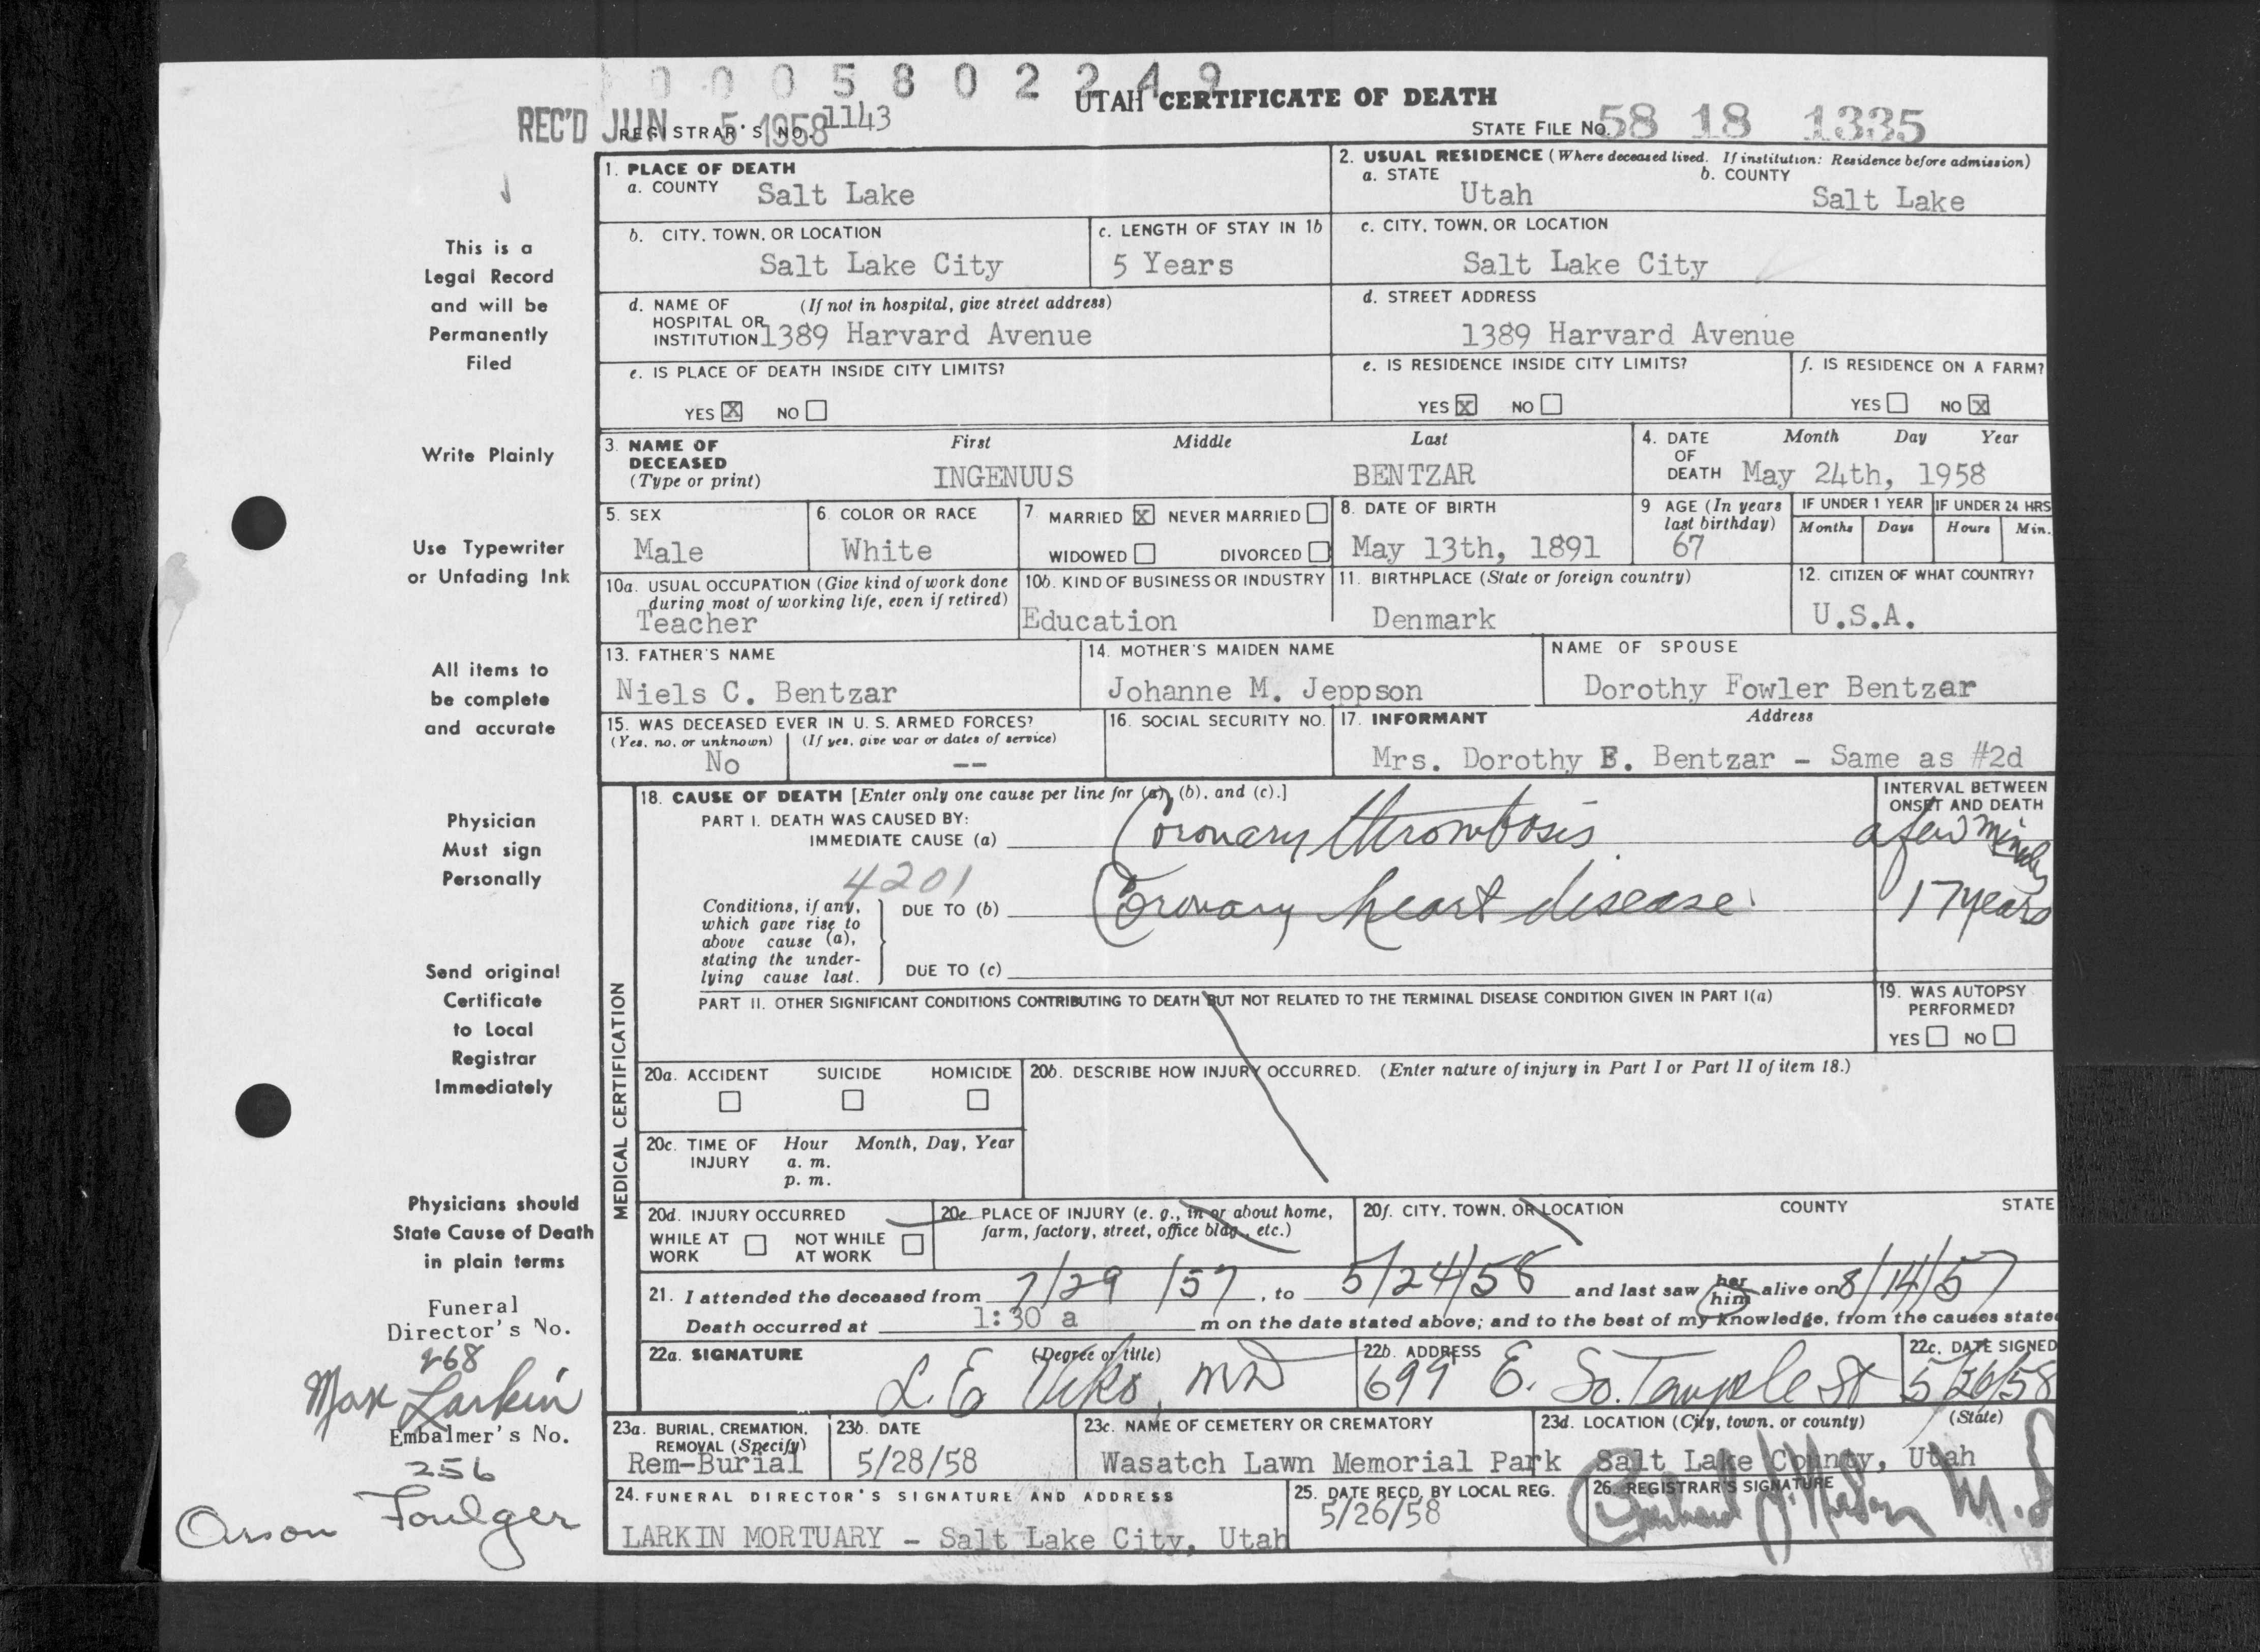 0 0 0 5 8 0 2 2 4 9
UTAH CERTIFICATE OF DEATH
REC'D JUN 5 1958
REGISTRAR'S NO. 1143
STATE FILE NO. 58 18 1335
This is a
Legal Record
and will be
Permanently
Filed
Write Plainly
Use Typewriter
or Unfading Ink
All items to
be complete
and accurate
Physician
Must sign
Personally
Send original
Certificate
to Local
Registrar
Immediately
Physicians should
State Cause of Death
in plain terms
Funeral
Director's No.
268
Max Larkin
Embalmer's No.
256
Orson Foulger
1. PLACE OF DEATH
a. COUNTY Salt Lake
2. USUAL RESIDENCE (Where deceased lived. If institution: Residence before admission)
a. STATE Utah b. COUNTY Salt Lake
b. CITY, TOWN, OR LOCATION
Salt Lake City
c. LENGTH OF STAY IN 1b
5 Years
c. CITY, TOWN, OR LOCATION
Salt Lake City
d. NAME OF (If not in hospital, give street address)
HOSPITAL OR
INSTITUTION 1389 Harvard Avenue
d. STREET ADDRESS
1389 Harvard Avenue
e. IS PLACE OF DEATH INSIDE CITY LIMITS?
YES X NO
e. IS RESIDENCE INSIDE CITY LIMITS?
YES X NO
f. IS RESIDENCE ON A FARM?
YES NO X
3. NAME OF DECEASED (Type or print)
First Middle Last
INGENUUS BENTZAR
4. DATE OF DEATH Month Day Year
May 24th, 1958
5. SEX
Male
6. COLOR OR RACE
White
7. MARRIED X NEVER MARRIED
WIDOWED DIVORCED
8. DATE OF BIRTH
May 13th, 1891
9 AGE (In years last birthday)
67
IF UNDER 1 YEAR IF UNDER 24 HRS
Months Days Hours Min.
10a. USUAL OCCUPATION (Give kind of work done
during most of working life, even if retired)
Teacher
10b. KIND OF BUSINESS OR INDUSTRY
Education
11. BIRTHPLACE (State or foreign country)
Denmark
12. CITIZEN OF WHAT COUNTRY?
U.S.A.
13. FATHER'S NAME
Niels C. Bentzar
14. MOTHER'S MAIDEN NAME
Johanne M. Jeppson
NAME OF SPOUSE
Dorothy Fowler Bentzar
15. WAS DECEASED EVER IN U. S. ARMED FORCES?
(Yes, no, or unknown) (If yes, give war or dates of service)
No --
16. SOCIAL SECURITY NO.
17. INFORMANT Address
Mrs. Dorothy F. Bentzar - Same as #2d
MEDICAL CERTIFICATION
18. CAUSE OF DEATH [Enter only one cause per line for (a), (b), and (c).]
INTERVAL BETWEEN
ONSET AND DEATH
PART I. DEATH WAS CAUSED BY:
IMMEDIATE CAUSE (a) Coronary thrombosis a few minutes
4201
Conditions, if any,
which gave rise to
above cause (a),
stating the under-
lying cause last.
DUE TO (b) Coronary heart disease 17 years
DUE TO (c)
PART II. OTHER SIGNIFICANT CONDITIONS CONTRIBUTING TO DEATH BUT NOT RELATED TO THE TERMINAL DISEASE CONDITION GIVEN IN PART I(a)
19. WAS AUTOPSY
PERFORMED?
YES NO
20a. ACCIDENT SUICIDE HOMICIDE
20b. DESCRIBE HOW INJURY OCCURRED. (Enter nature of injury in Part I or Part II of item 18.)
20c. TIME OF INJURY Hour Month, Day, Year
a. m.
p. m.
20d. INJURY OCCURRED
WHILE AT WORK NOT WHILE AT WORK
20e. PLACE OF INJURY (e. g., in or about home,
farm, factory, street, office bldg., etc.)
20f. CITY, TOWN, OR LOCATION COUNTY STATE
21. I attended the deceased from 7/29/57, to 5/24/58 and last saw her him alive on 8/14/57
Death occurred at 1:30 a m on the date stated above; and to the best of my knowledge, from the causes state
22a. SIGNATURE (Degree or title)
L. E. Viko, MD
22b. ADDRESS
699 E. So. Temple St
22c. DATE SIGNED
5/26/58
23a. BURIAL, CREMATION,
REMOVAL (Specify)
Rem-Burial
23b. DATE
5/28/58
23c. NAME OF CEMETERY OR CREMATORY
Wasatch Lawn Memorial Park
23d. LOCATION (City, town, or county) (State)
Salt Lake County, Utah
24. FUNERAL DIRECTOR'S SIGNATURE AND ADDRESS
LARKIN MORTUARY - Salt Lake City, Utah
25. DATE RECD. BY LOCAL REG.
5/26/58
26. REGISTRAR'S SIGNATURE
M.D.